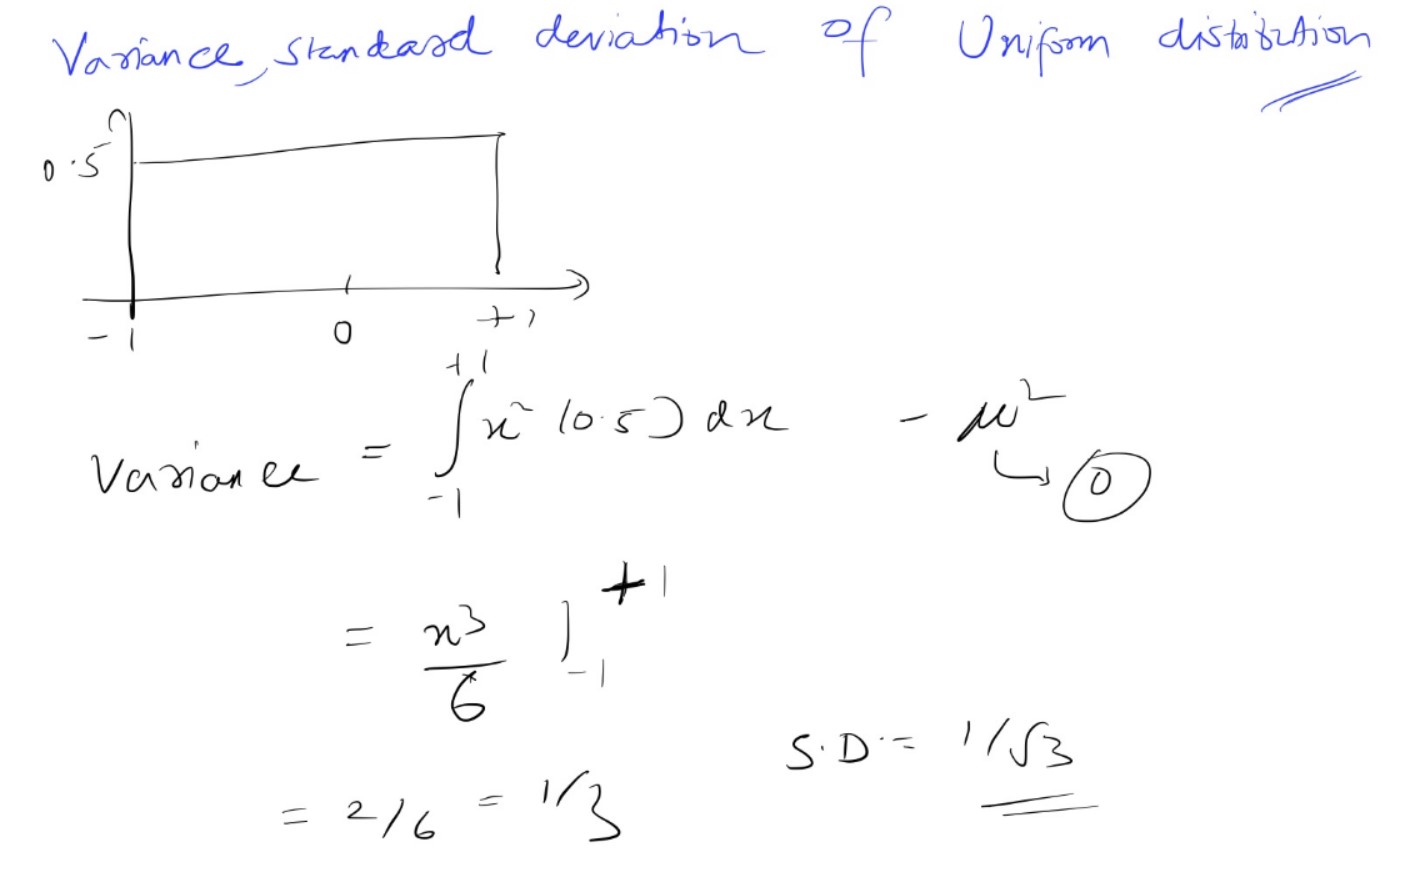 Variance, standard deviation of Uniform distribution
0.5
-1 0 +1
Variance = ∫_{-1}^{+1} x² (0.5) dx - μ²
↳ 0
= x³/6 ]_{-1}^{+1}
S.D. = 1/√3
= 2/6 = 1/3